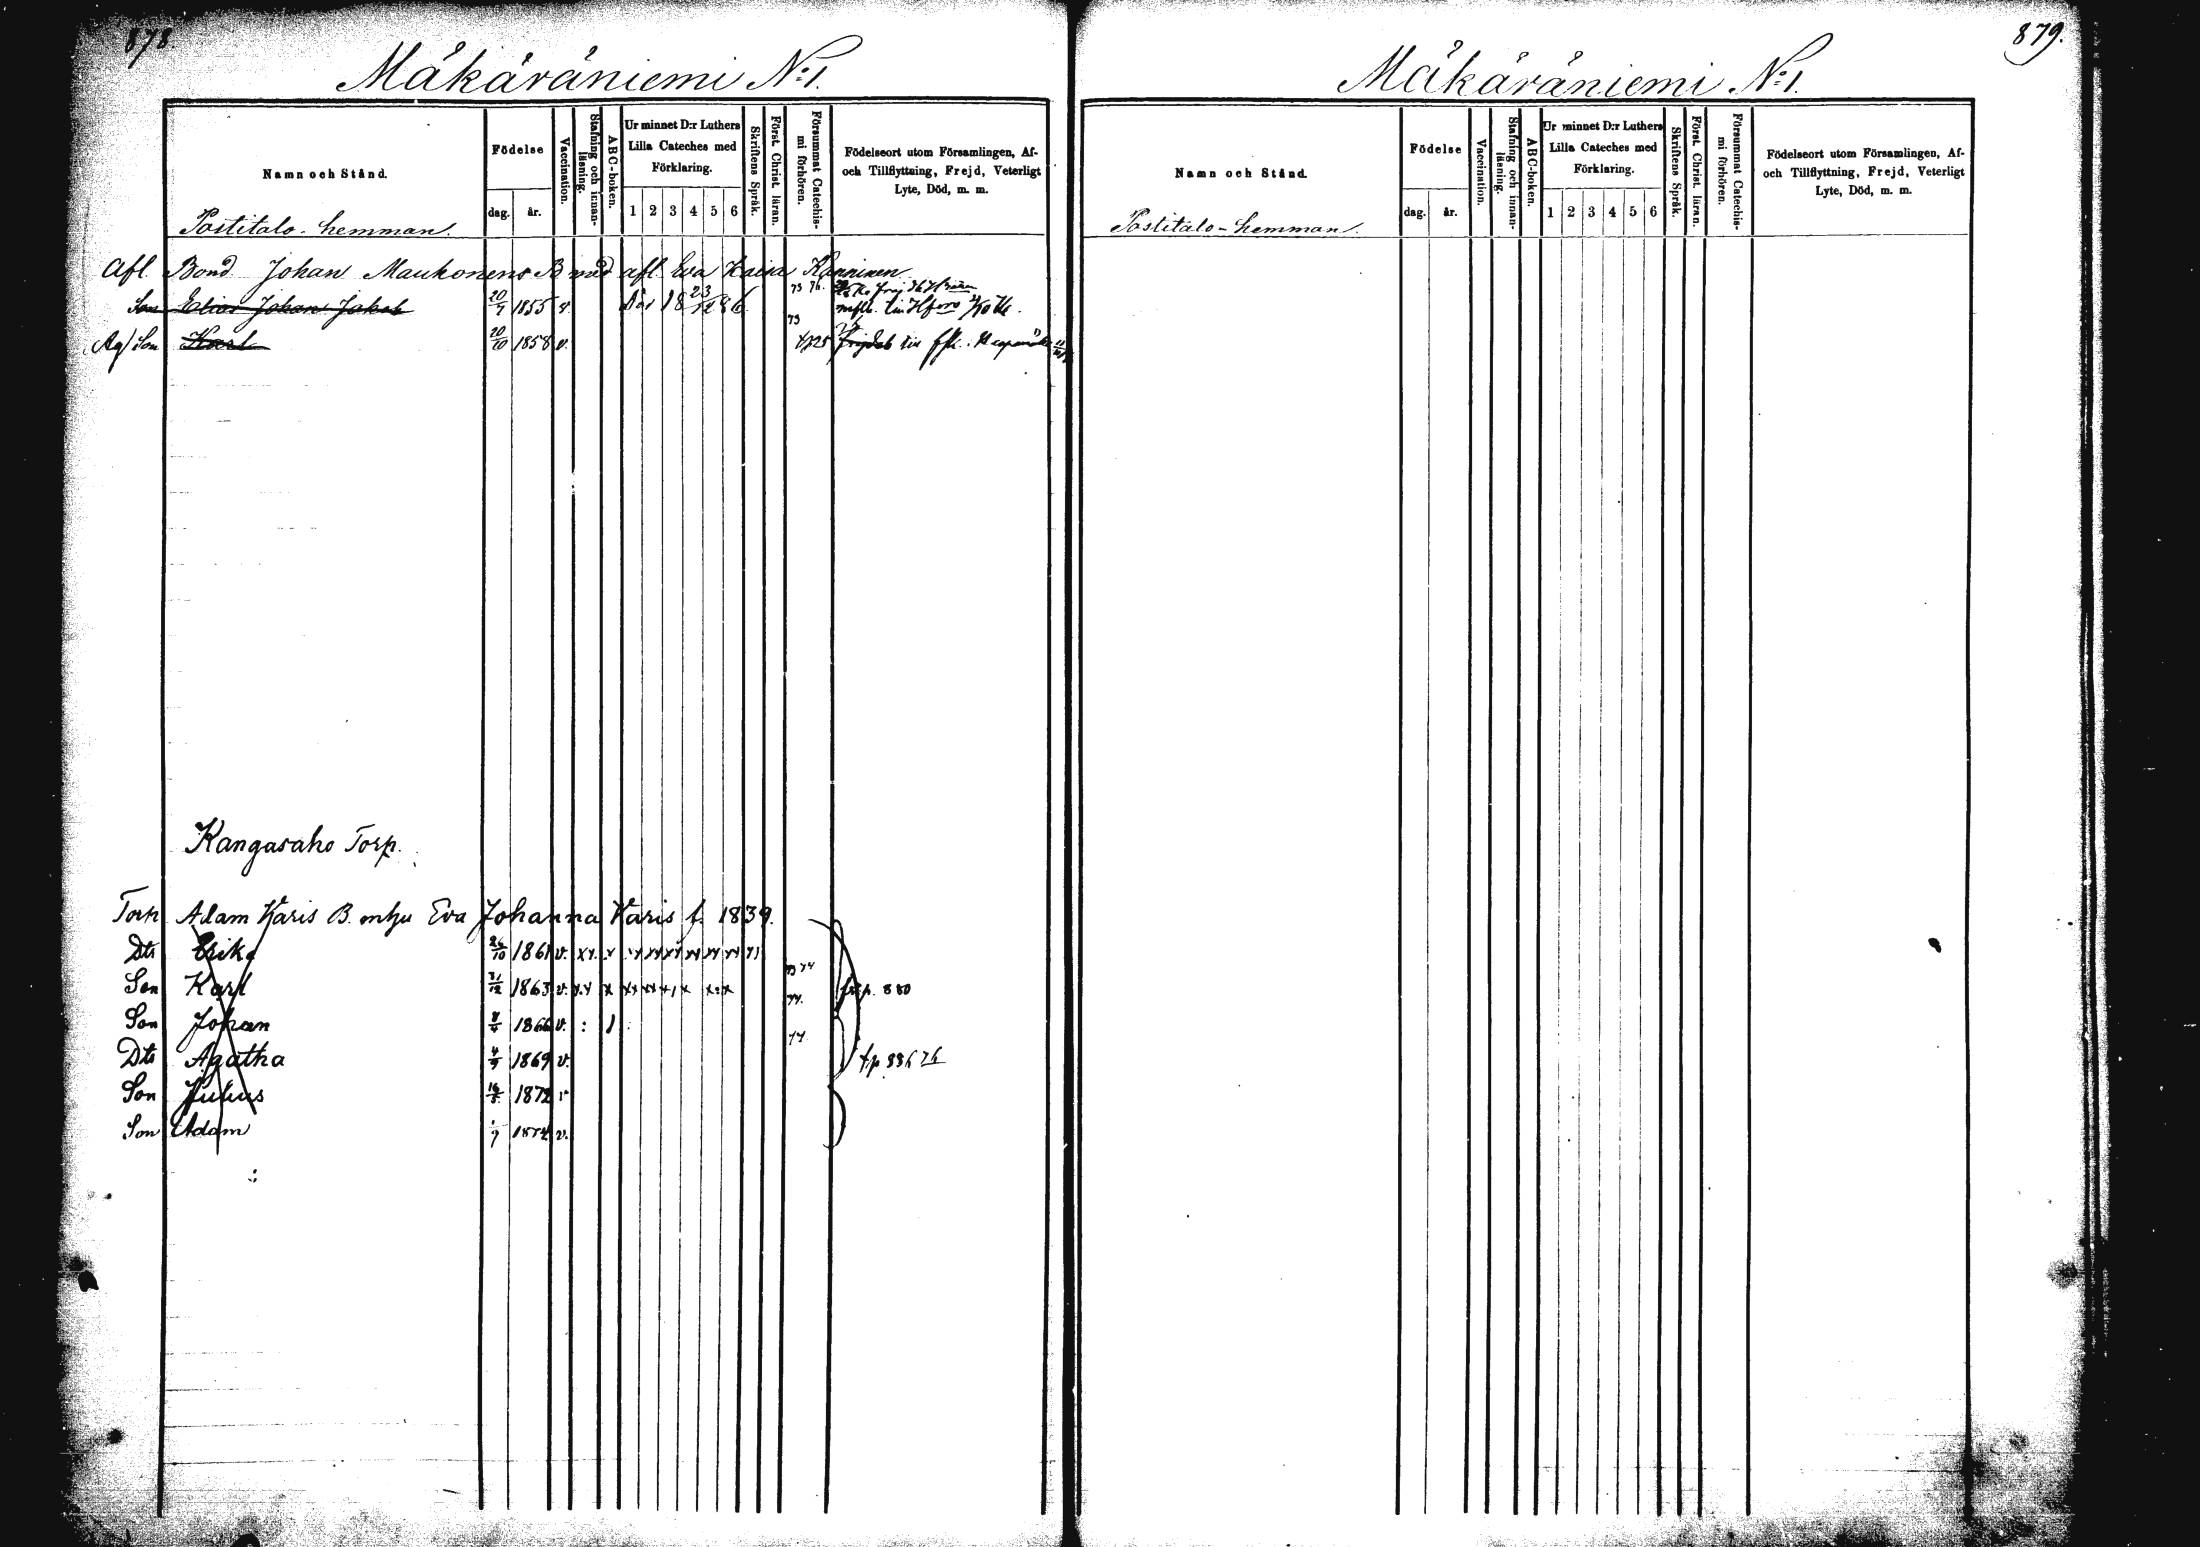 878.
Måkåråniemi No:1.
Namn och Stånd.
Födelse
dag. år.
Vaccination.
Stafning och innanläsning.
ABC-boken.
Ur minnet D:r Luthers
Lilla Cateches med
Förklaring.
1 2 3 4 5 6
Skriftens Språk.
Först. Christ. läran.
Försummat Catechismi förhören.
Födelseort utom Församlingen, Af-
och Tillflyttning, Frejd, Veterligt
Lyte, Död, m. m.
Postitalo-hemman.
Afl Bond Johan Maukonens B med afl Eva Kaisa
Son Johan Jakob 20/7 1855 v. Dör 18 23/12 86 73 76.
Son Karl 20/10 1858 v. 73
Kangasaho Torp.
Torp Adam Karis B. m hu Eva Johanna Karis f. 1839.
Dtr Erika 26/10 1861 v.
Son Karl 31/12 1863 v. 73 74
Son Johan 1866 v. 74. p. 880
Dtr Agatha 4/9 1869 v. 74
Son Julius 1872 v
Son Adam 1874 v.
879.
Måkåråniemi No:1.
Namn och Stånd.
Födelse
dag. år.
Vaccination.
Stafning och innanläsning.
ABC-boken.
Ur minnet D:r Luthers
Lilla Cateches med
Förklaring.
1 2 3 4 5 6
Skriftens Språk.
Först. Christ. läran.
Försummat Catechismi förhören.
Födelseort utom Församlingen, Af-
och Tillflyttning, Frejd, Veterligt
Lyte, Död, m. m.
Postitalo-hemman.